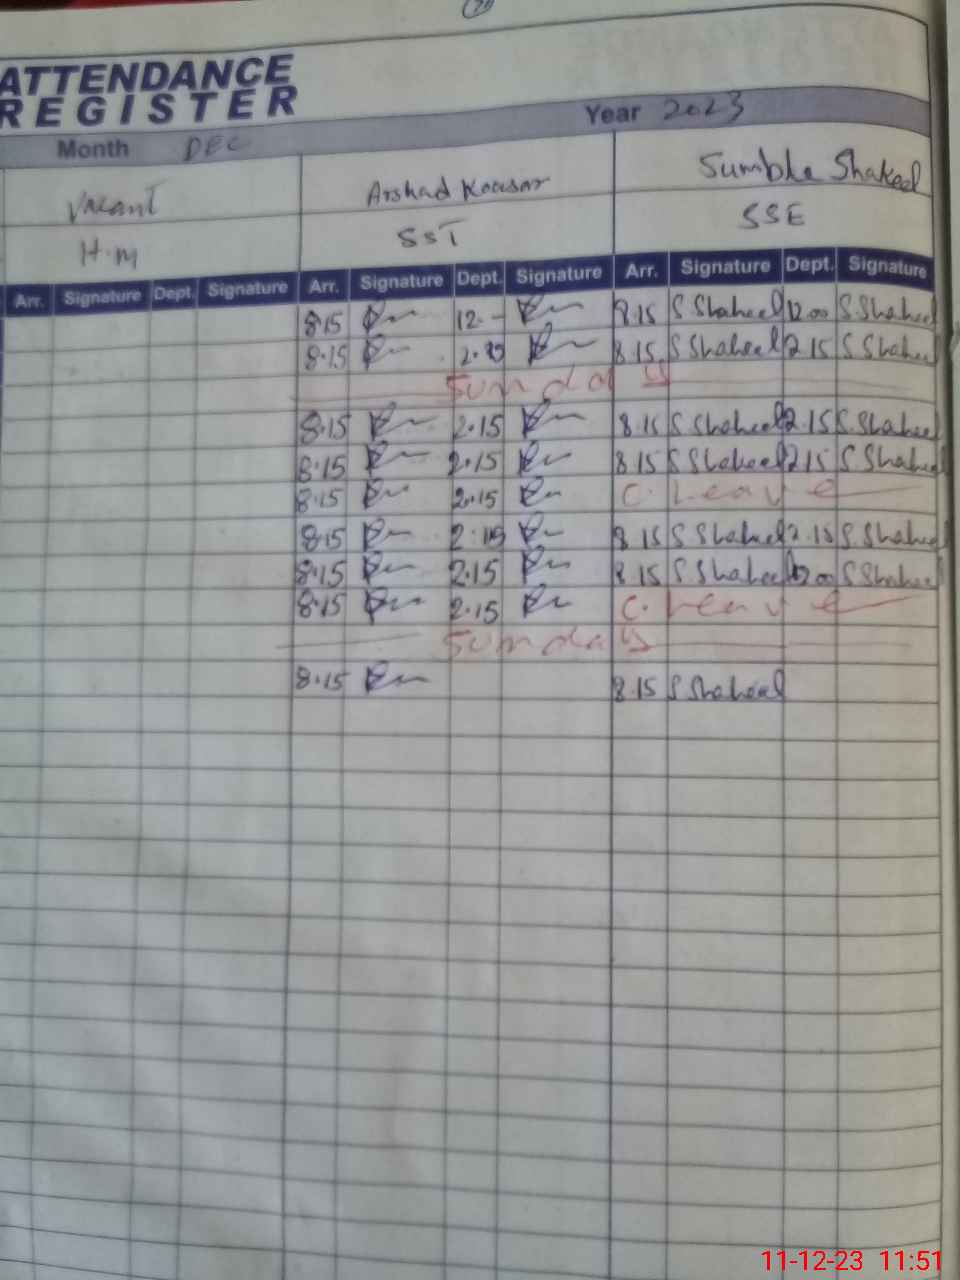 ATTENDANCE
REGISTER
Year 2023
Month DEC
Vacant Arshad Kousar Sumbla Shakeel
H.M SST SSE
Arr. Signature Dept. Signature Arr. Signature Dept. Signature Arr. Signature Dept. Signature
8.15 12.- 8.15 S Shakeel 12.00 S.Shakeel
8.15 8.15 S Shakeel 2.15 S Shakeel
Sunday
8.15 2.15 8.15 S Shakeel 2.15 S.Shakeel
8.15 2.15 8.15 S Shakeel 2.15 S Shakeel
8.15 2.15 C. Leave
8.15 2.15 8.15 S Shakeel 2.15 S.Shakeel
8.15 2.15 8.15 S Shakeel 12.00 S Shakeel
8.15 2.15 C. Leave
Sunday
8.15 8.15 S Shakeel
11-12-23 11:51